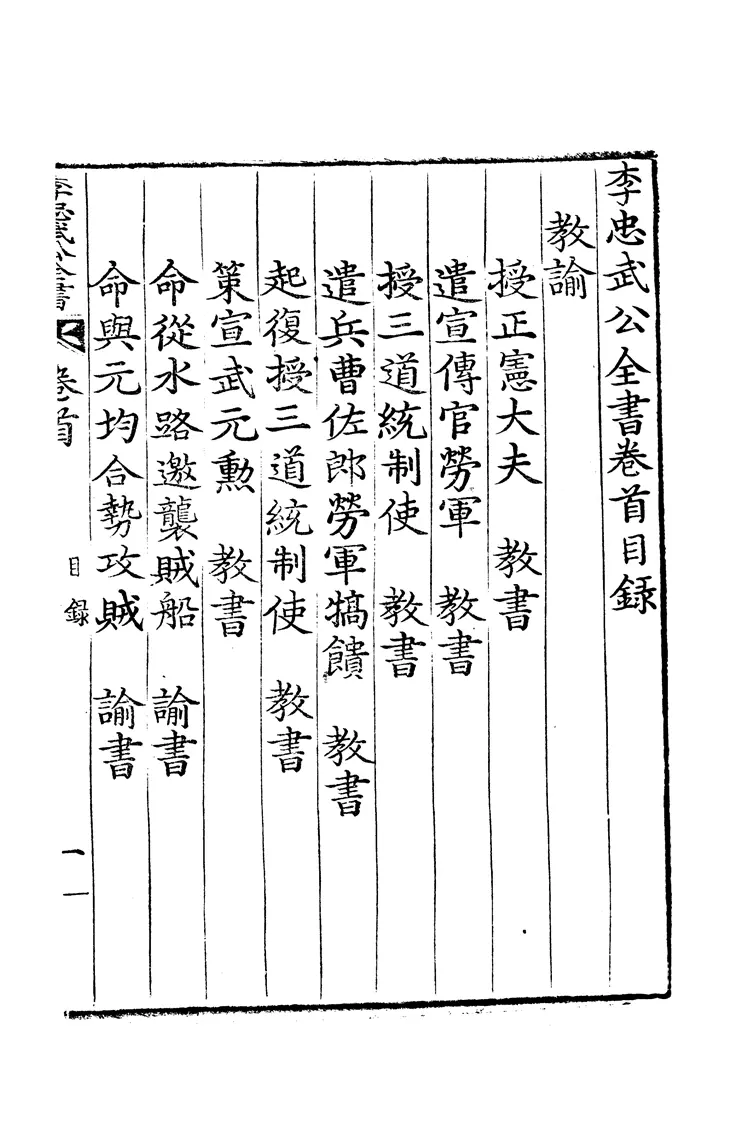 李忠武公全書卷首目録
教諭
授正憲大夫　教書
遣宣傳官勞軍　教書
授三道統制使　教書
遣兵曹佐郎勞軍犒饋　教書
起復授三道統制使　教書
策宣武元勳　教書
命從水路邀襲賊船　諭書
命與元均合勢攻賊　諭書
李忠武公全書　卷首　目録　一